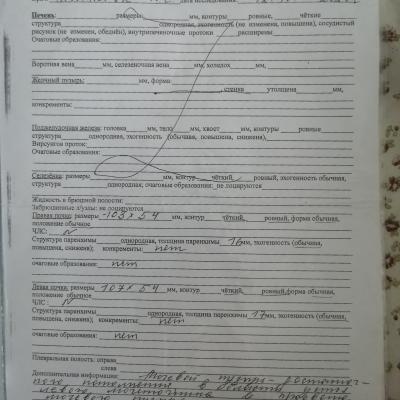 Печень: размеры мм, контуры ровные, чёткие
структура однородная, эхогенность (не изменена, повышена), сосудистый
рисунок (не изменен, обеднён), внутрипеченочные протоки расширены
Очаговые образования:
Воротная вена мм, селезеночная вена мм, холедох мм,
Желчный пузырь: мм, форма
стенка утолщена мм,
конкременты:
Поджелудочная железа: головка мм, тело мм, хвост мм, контуры ровные,
структура однородная, эхогенность (обычная, повышена, снижена),
Вирсунгов проток:
Очаговые образования:
Селезёнка: размеры мм, контур чёткий, ровный, эхогенность обычная,
структура однородная; очаговые образования: не лоцируются
Жидкость в брюшной полости:
Забрюшинные л/узлы: не лоцируются
Правая почка: размеры 103 x 54 мм, контур чёткий, ровный, форма обычная,
положение обычное
ЧЛС: N
Структура паренхимы однородная, толщина паренхимы 16 мм, эхогенность (обычная,
повышена, снижена); конкременты: нет
очаговые образования: нет
Левая почка: размеры 107 x 54 мм, контур чёткий, ровный, форма обычная,
положение обычное
ЧЛС: N
Структура паренхимы однородная, толщина паренхимы 17 мм, эхогенность (обычная,
повышена, снижена); конкременты: нет
очаговые образования: нет
Плевральная полость: справа
слева
Дополнительная информация: Мочевой пузырь достаточ-
ного наполнения в области устья
левого мочеточника в просвете
мочевого